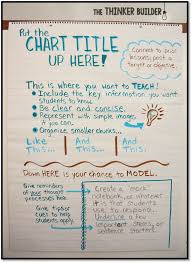 THE THINKER BUILDER
Put the
CHART TITLE
UP HERE!
Connect to prior
lessons; post a
target or objective
This is where you want to TEACH!
Include the key information you want
students to know.
Be clear and concise.
Represent with simple images
if you can.
Organize smaller chunks...
Like
This...
And
This...
And
This...
Down HERE is your chance to MODEL.
Give reminders
of your thought
processes here.
Give tips or
cues to help
students apply.
Create a "mock"
notebook, or whatever
it is that students
use to respond.
Underline &
Important steps, or
sentence starters